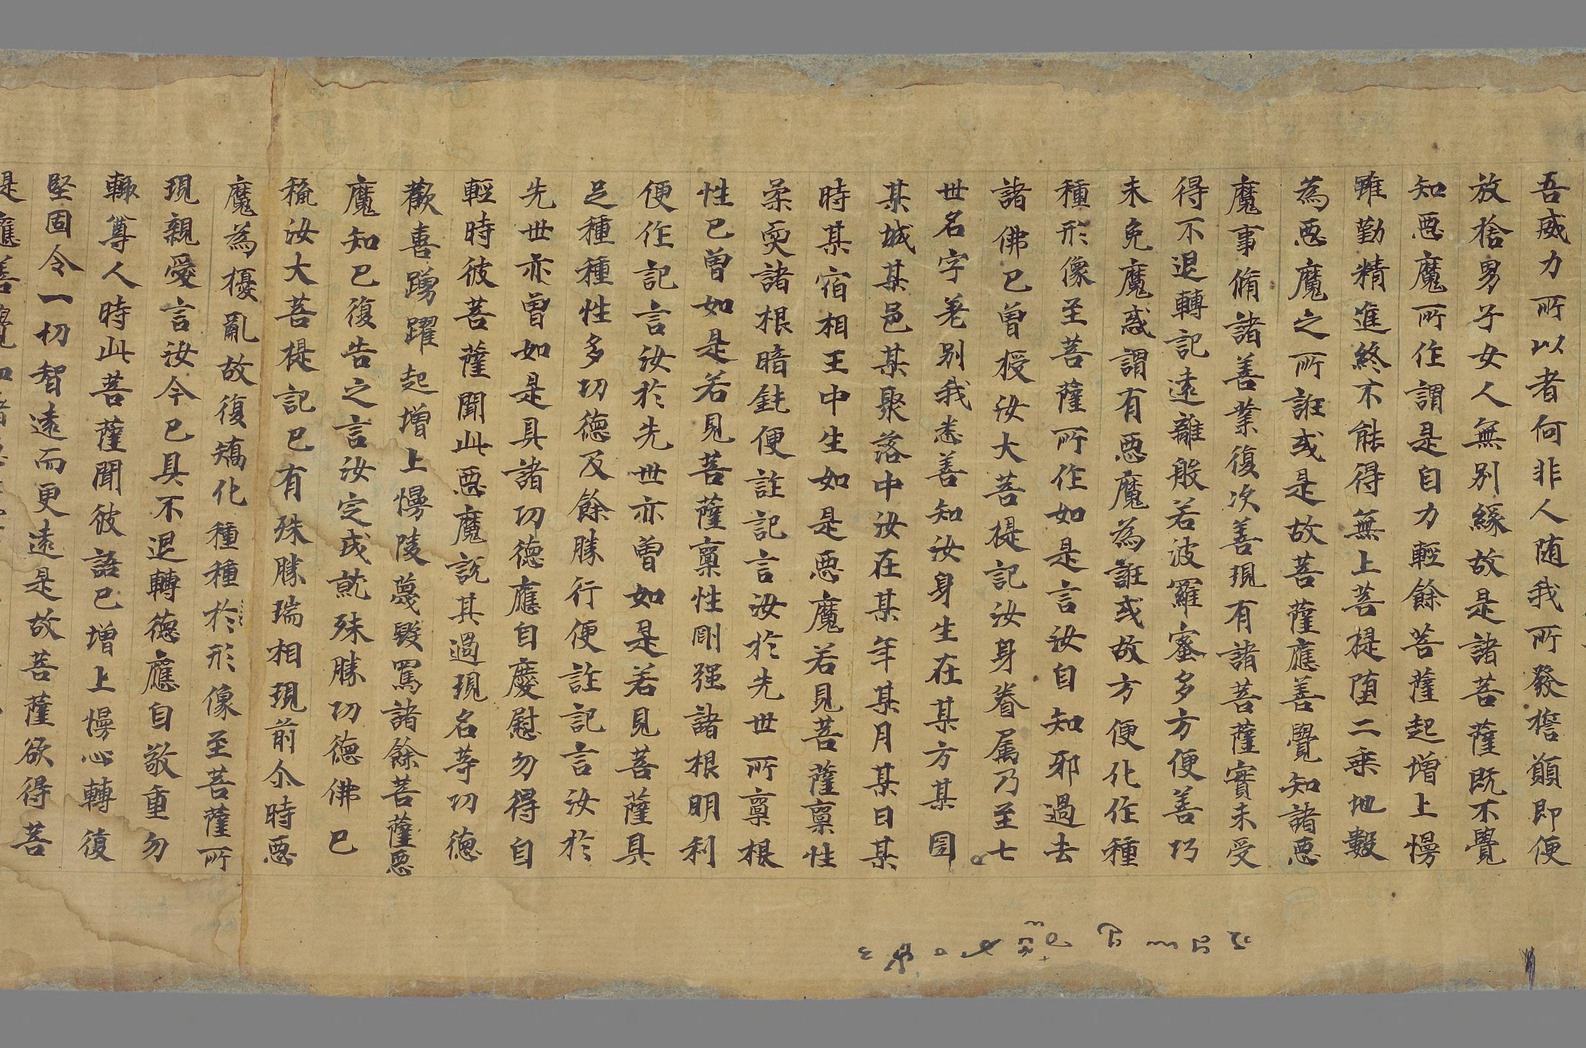 吾威力所以者何非人随我所發擔願即便
放捨男子女人無別緣故是諸菩薩既不覺
知惡魔所作謂是自力輕餘菩薩起增上慢
雖勤精進終不能得無上菩提墮二乘地數
為惡魔之所誑或是故菩薩應善覺知諸惡
魔事脩諸善業復次善現有諸菩薩實未受
得不退轉記遠離般若波羅蜜多方便善巧
未免魔惑謂有惡魔為誑或故方便化作種
種形像至菩薩所作如是言汝自知邪過去
諸佛已曾授汝大菩提記汝身眷属乃至七
世名字差別我悉善知汝身生在某方某國
某城某邑某聚落中汝在某年某月某日某
時某宿相王中生如是惡魔若見菩薩稟性
柔耎諸根暗鈍便詐記言汝於先世所稟根
性已曾如是若見菩薩稟性剛强諸根明利
便作記言汝於先世亦曾如是若見菩薩具
足種種性多功德及餘勝行便詐記言汝於
先世亦曾如是具諸功德應自慶慰勿得自
輕時彼菩薩聞此惡魔説其過現名等功德
歡喜踴躍起增上慢陵蔑毀罵諸餘菩薩惡
魔知已復告之言汝定成就殊勝功德佛已
授汝大菩提記已有殊勝瑞相現前尒時惡
魔為擾亂故復矯化種種於形像至菩薩所
現親愛言汝今已具不退轉德應自敬重勿
輙尊人時此菩薩聞彼語已增上慢心轉復
堅固令一切智遠而更遠是故菩薩欲得菩